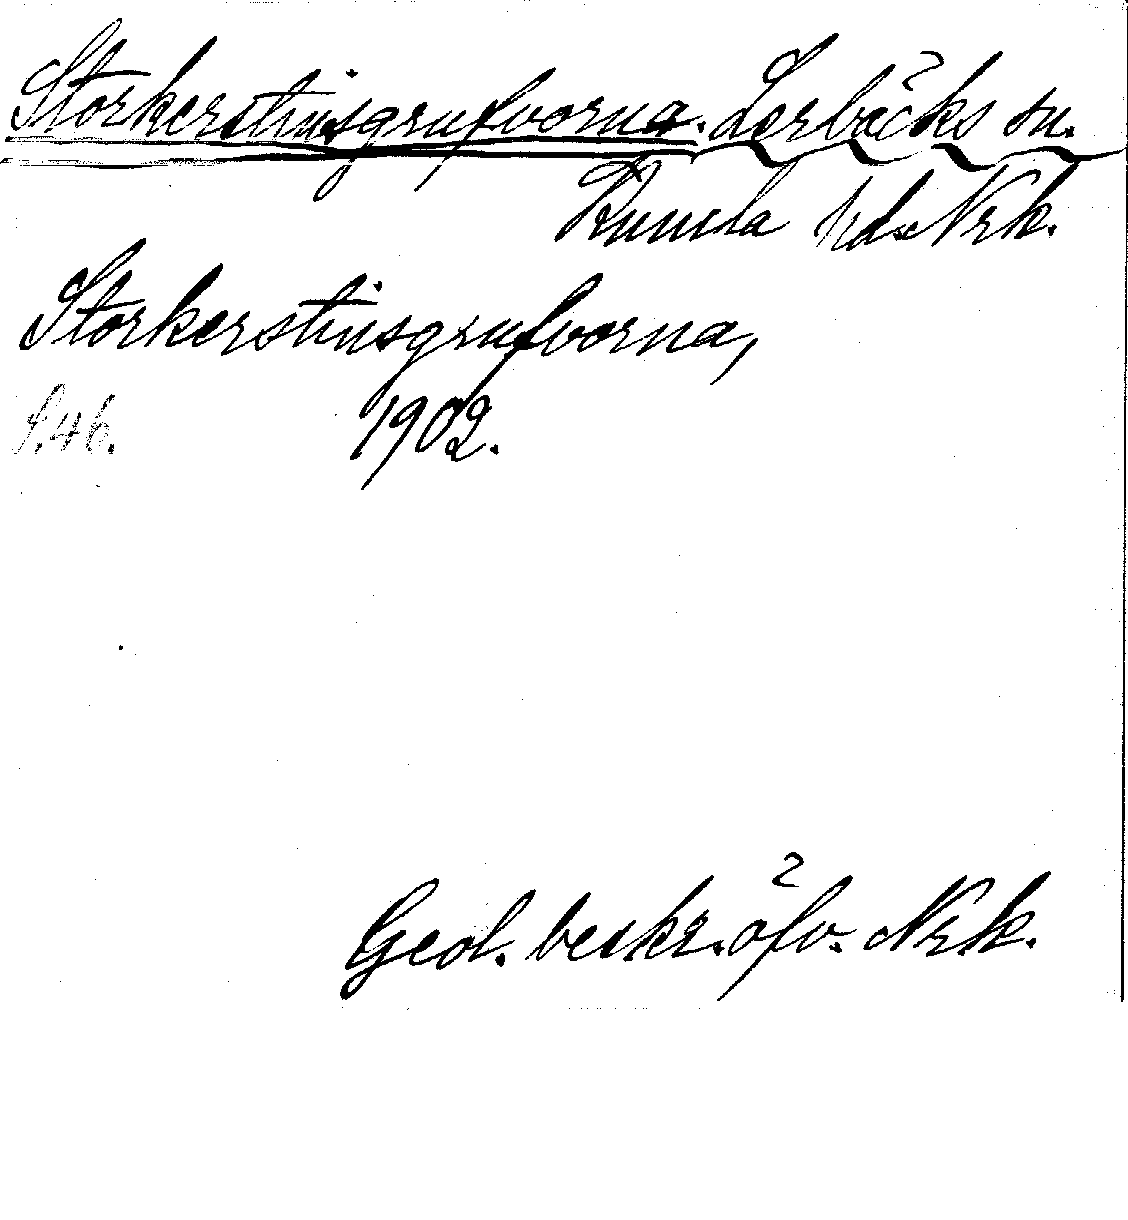 Storkerstinsgrufvorna. Lerbäcks sn.
Kumla hd. Nrk.
Storkerstinsgrufvorna,
S. 46. 1902.
Geol. beskr. öfv. Nrk.